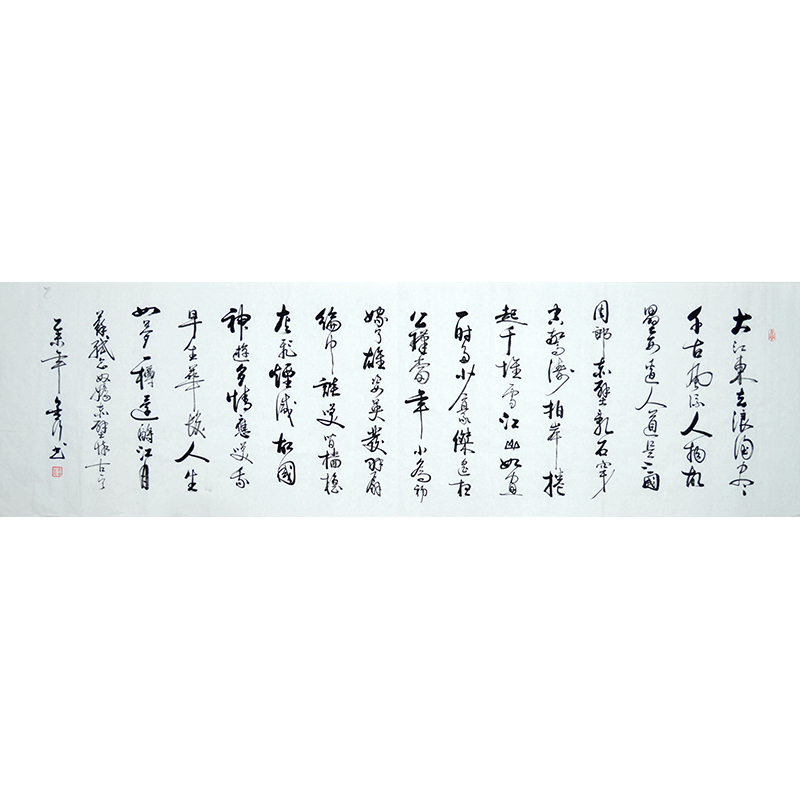 大江東去浪淘盡
千古風流人物故
壘西邊人道是三國
周郎赤壁亂石穿
空驚濤拍岸捲
起千堆雪江山如畫
一時多少豪傑遥想
公瑾當年小喬初
嫁了雄姿英發羽扇
綸巾談笑間檣櫓
灰飛煙滅故國
神遊多情應笑我
早生華髮人生
如夢一樽還酹江月
蘇軾念奴嬌赤壁懷古
年書